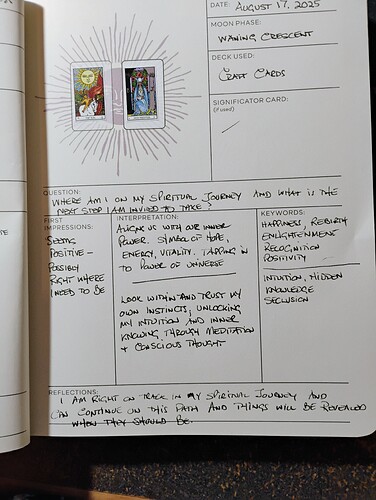 DATE: AUGUST 17, 2025
MOON PHASE:
WANING CRESCENT
DECK USED:
CRAFT CARDS
SIGNIFICATOR CARD:
(if used)
QUESTION:
WHERE AM I ON MY SPIRITUAL JOURNEY AND WHAT IS THE
NEXT STOP I AM INVITED TO TAKE?
FIRST
IMPRESSIONS:
BEING
POSITIVE -
POSSIBLY
RIGHT WHERE
I NEED TO BE
INTERPRETATION:
ALIGNS US WITH OUR INNER
POWER. SYMBOL OF HOPE,
ENERGY, VITALITY. TAPPING IN
TO POWER OF UNIVERSE
LOOK WITHIN AND TRUST MY
OWN INSTINCTS, UNLOCKING
MY INTUITION AND INNER
KNOWING THROUGH MEDITATION
+ CONSCIOUS THOUGHT
KEYWORDS:
HAPPINESS REBIRTH
ENLIGHTENMENT
RECOGNITION
POSITIVITY
INTUITION, HIDDEN
KNOWLEDGE
SECLUSION
REFLECTIONS:
I AM RIGHT ON TRACK IN MY SPIRITUAL JOURNEY AND
CAN CONTINUE ON THIS PATH AND THINGS WILL BE REVEALED
WHEN THEY SHOULD BE.